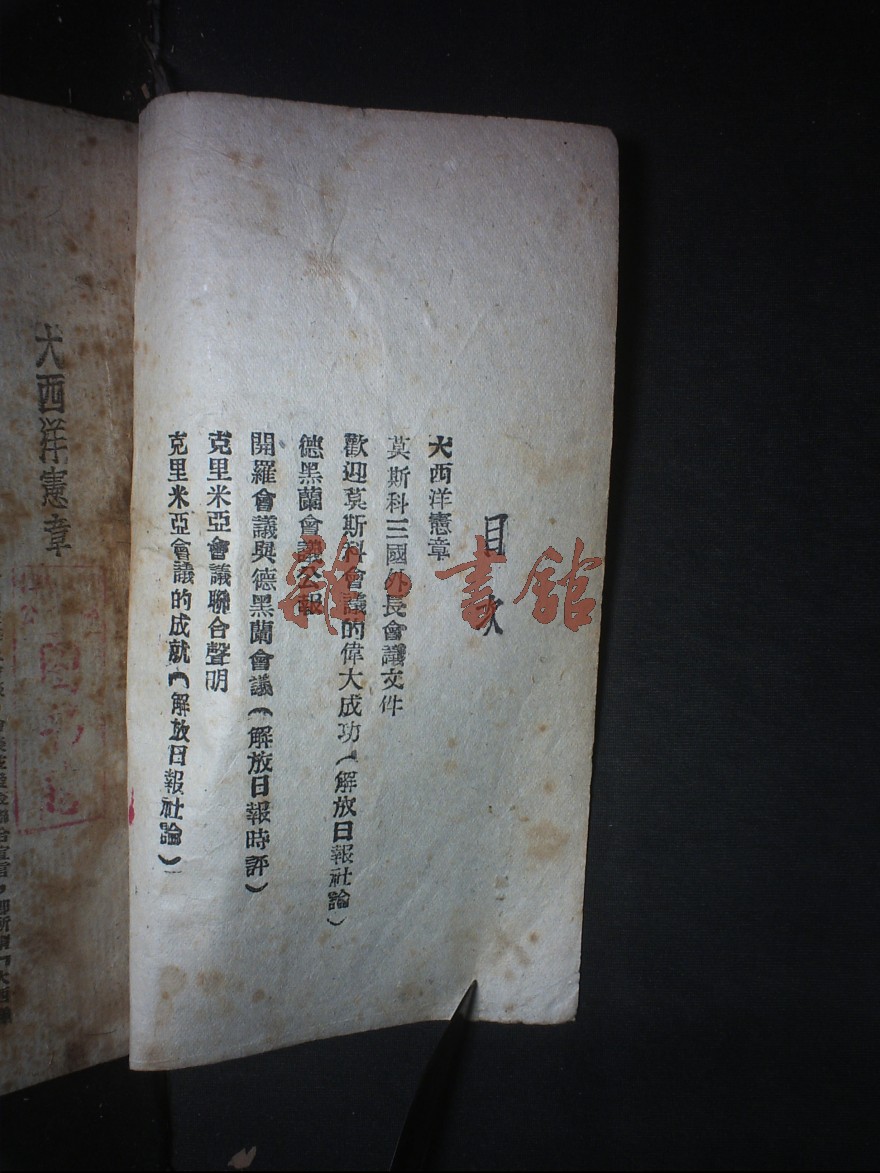 目次
大西洋憲章
莫斯科三國外長會議文件
歡迎莫斯科會議的偉大成功(解放日報社論)
德黑蘭會議公報
開羅會議與德黑蘭會議(解放日報時評)
克里米亞會議聯合聲明
克里米亞會議的成就(解放日報社論)
大西洋憲章
雜·書館